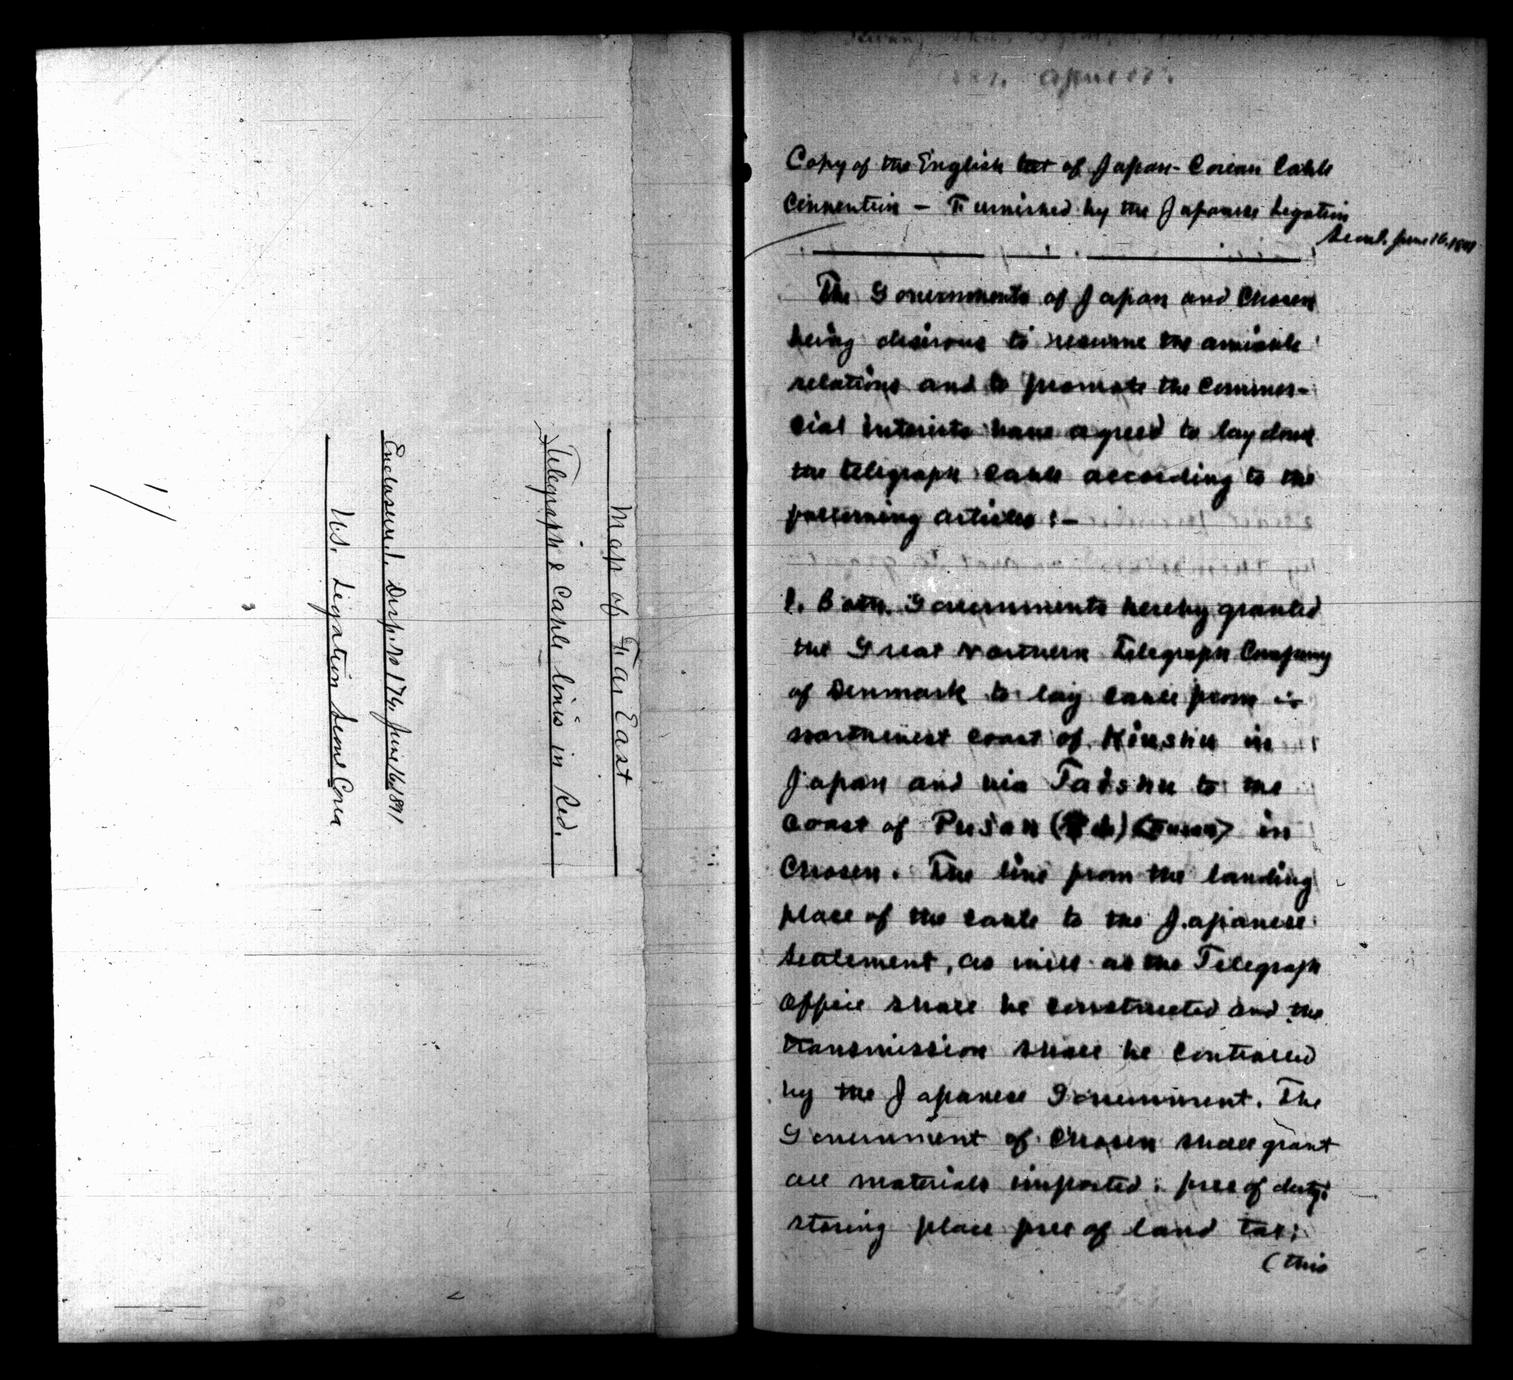 Map of Far East
Telegraph & Cable lines in Red.
Enclosure 1. Disp. No 176, June 16, 1891
U.S. Legation Seoul Corea
Copy of the English text of Japan-Corean Cable
Convention — Furnished by the Japanese Legation
Seoul. June 16, 1891
The Governments of Japan and Chosen
being desirous to resume the amicable
relations and to promote the commer-
cial interests have agreed to lay down
the telegraph cable according to the
following articles:—
1. Both Governments hereby granted
the Great Northern Telegraph Company
of Denmark to lay cable from
northwest coast of Kiushu in
Japan and via Taishu to the
coast of Pusan (Fusan) in
Chosen. The line from the landing
place of the cable to the Japanese
settlement, as well as the Telegraph
office shall be constructed and the
transmission shall be controlled
by the Japanese Government. The
Government of Chosen shall grant
all materials imported: free of duty:
storing place free of land tax;
(this